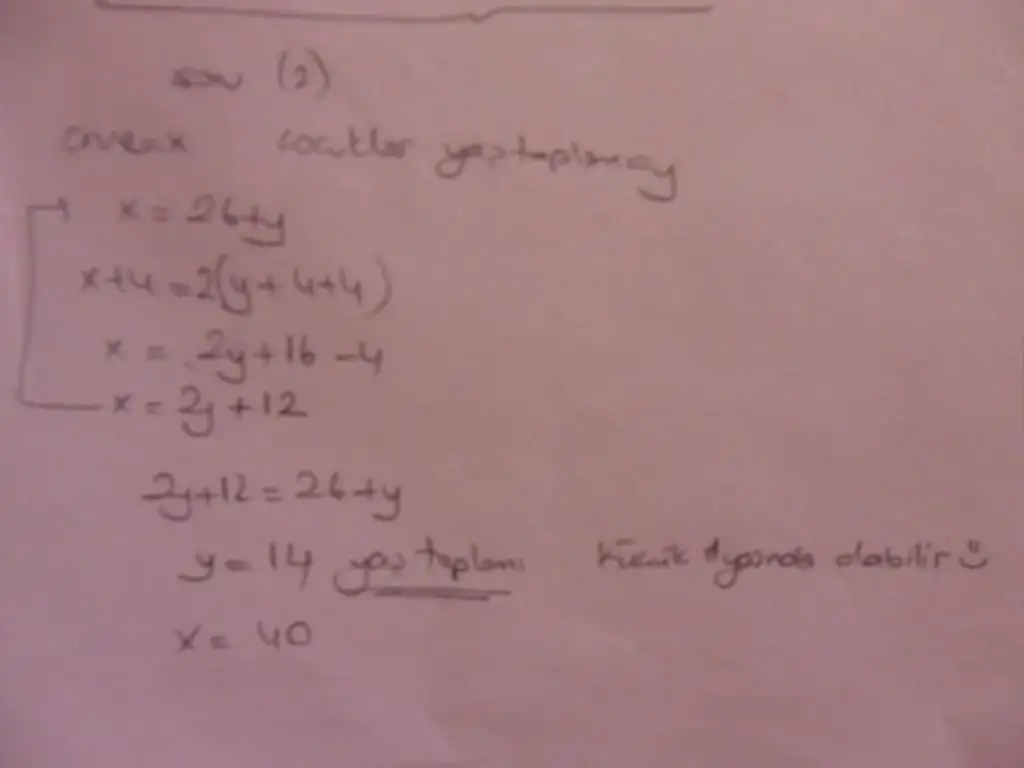 soru (2)
anne=x çocuklar yaş toplamı=y
x = 26+y
x+4 = 2(y+4+4)
x = 2y+16-4
x = 2y+12
2y+12 = 26+y
y = 14 yaş toplamı küçük yaşında olabilir
x = 40